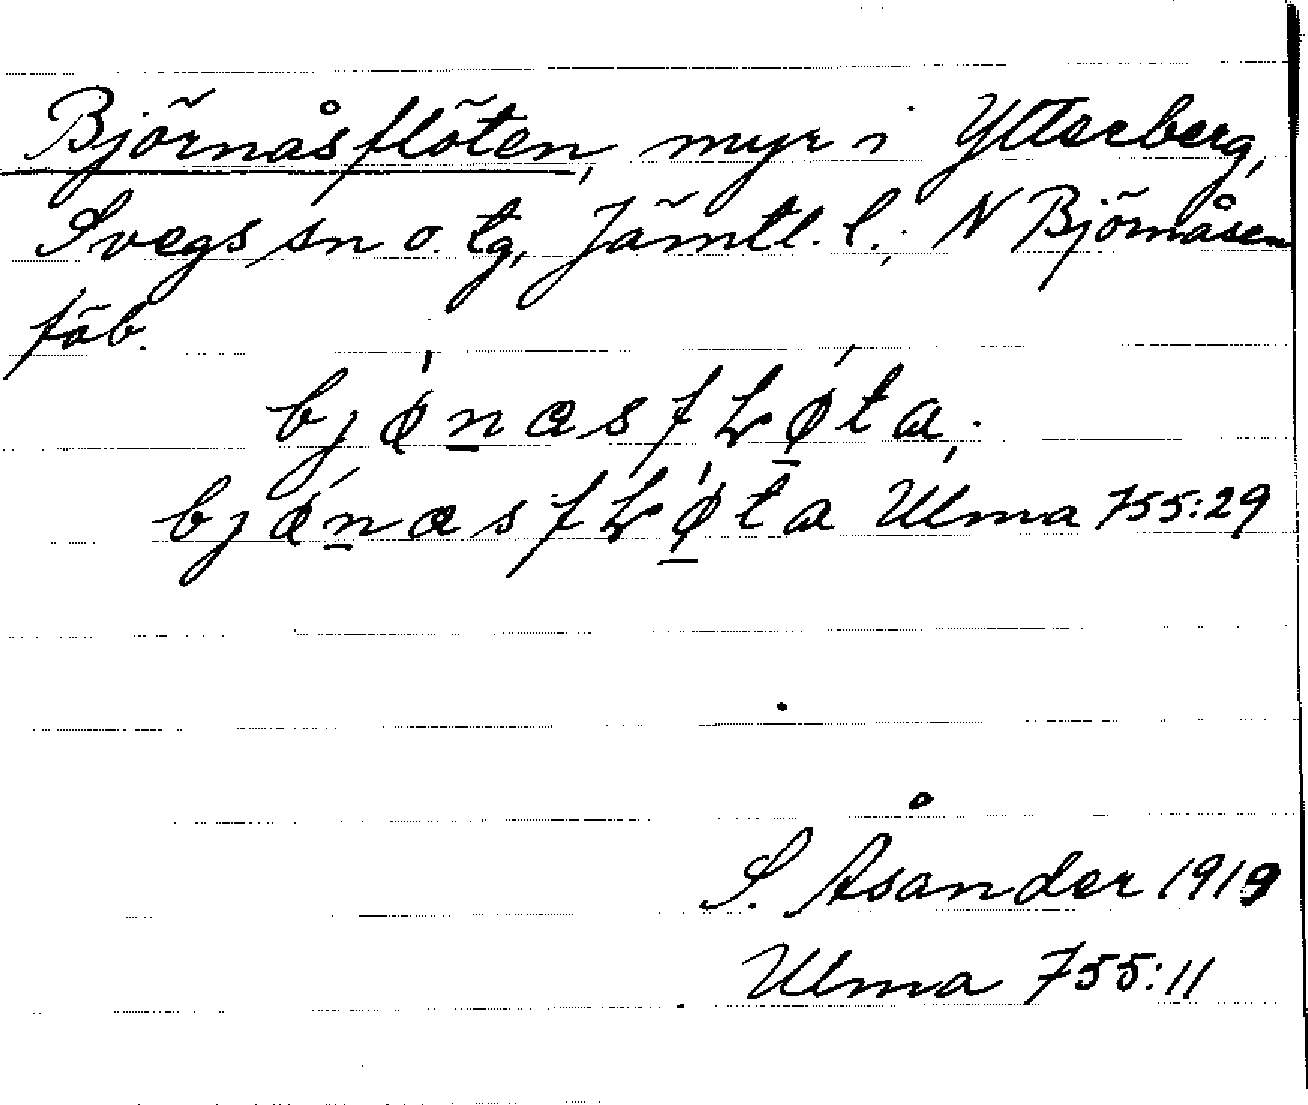 Björnåsflöten, myr i Ytterberg,
Svegs sn o. tg, Jämtl. l.; N Björnåsen
fäb.
bjǿn̲asfłǿ̲ta,.
bjǿn̲asfłø̲̍ta Ulma 755:29
S. Åsander 1919
Ulma 755:11